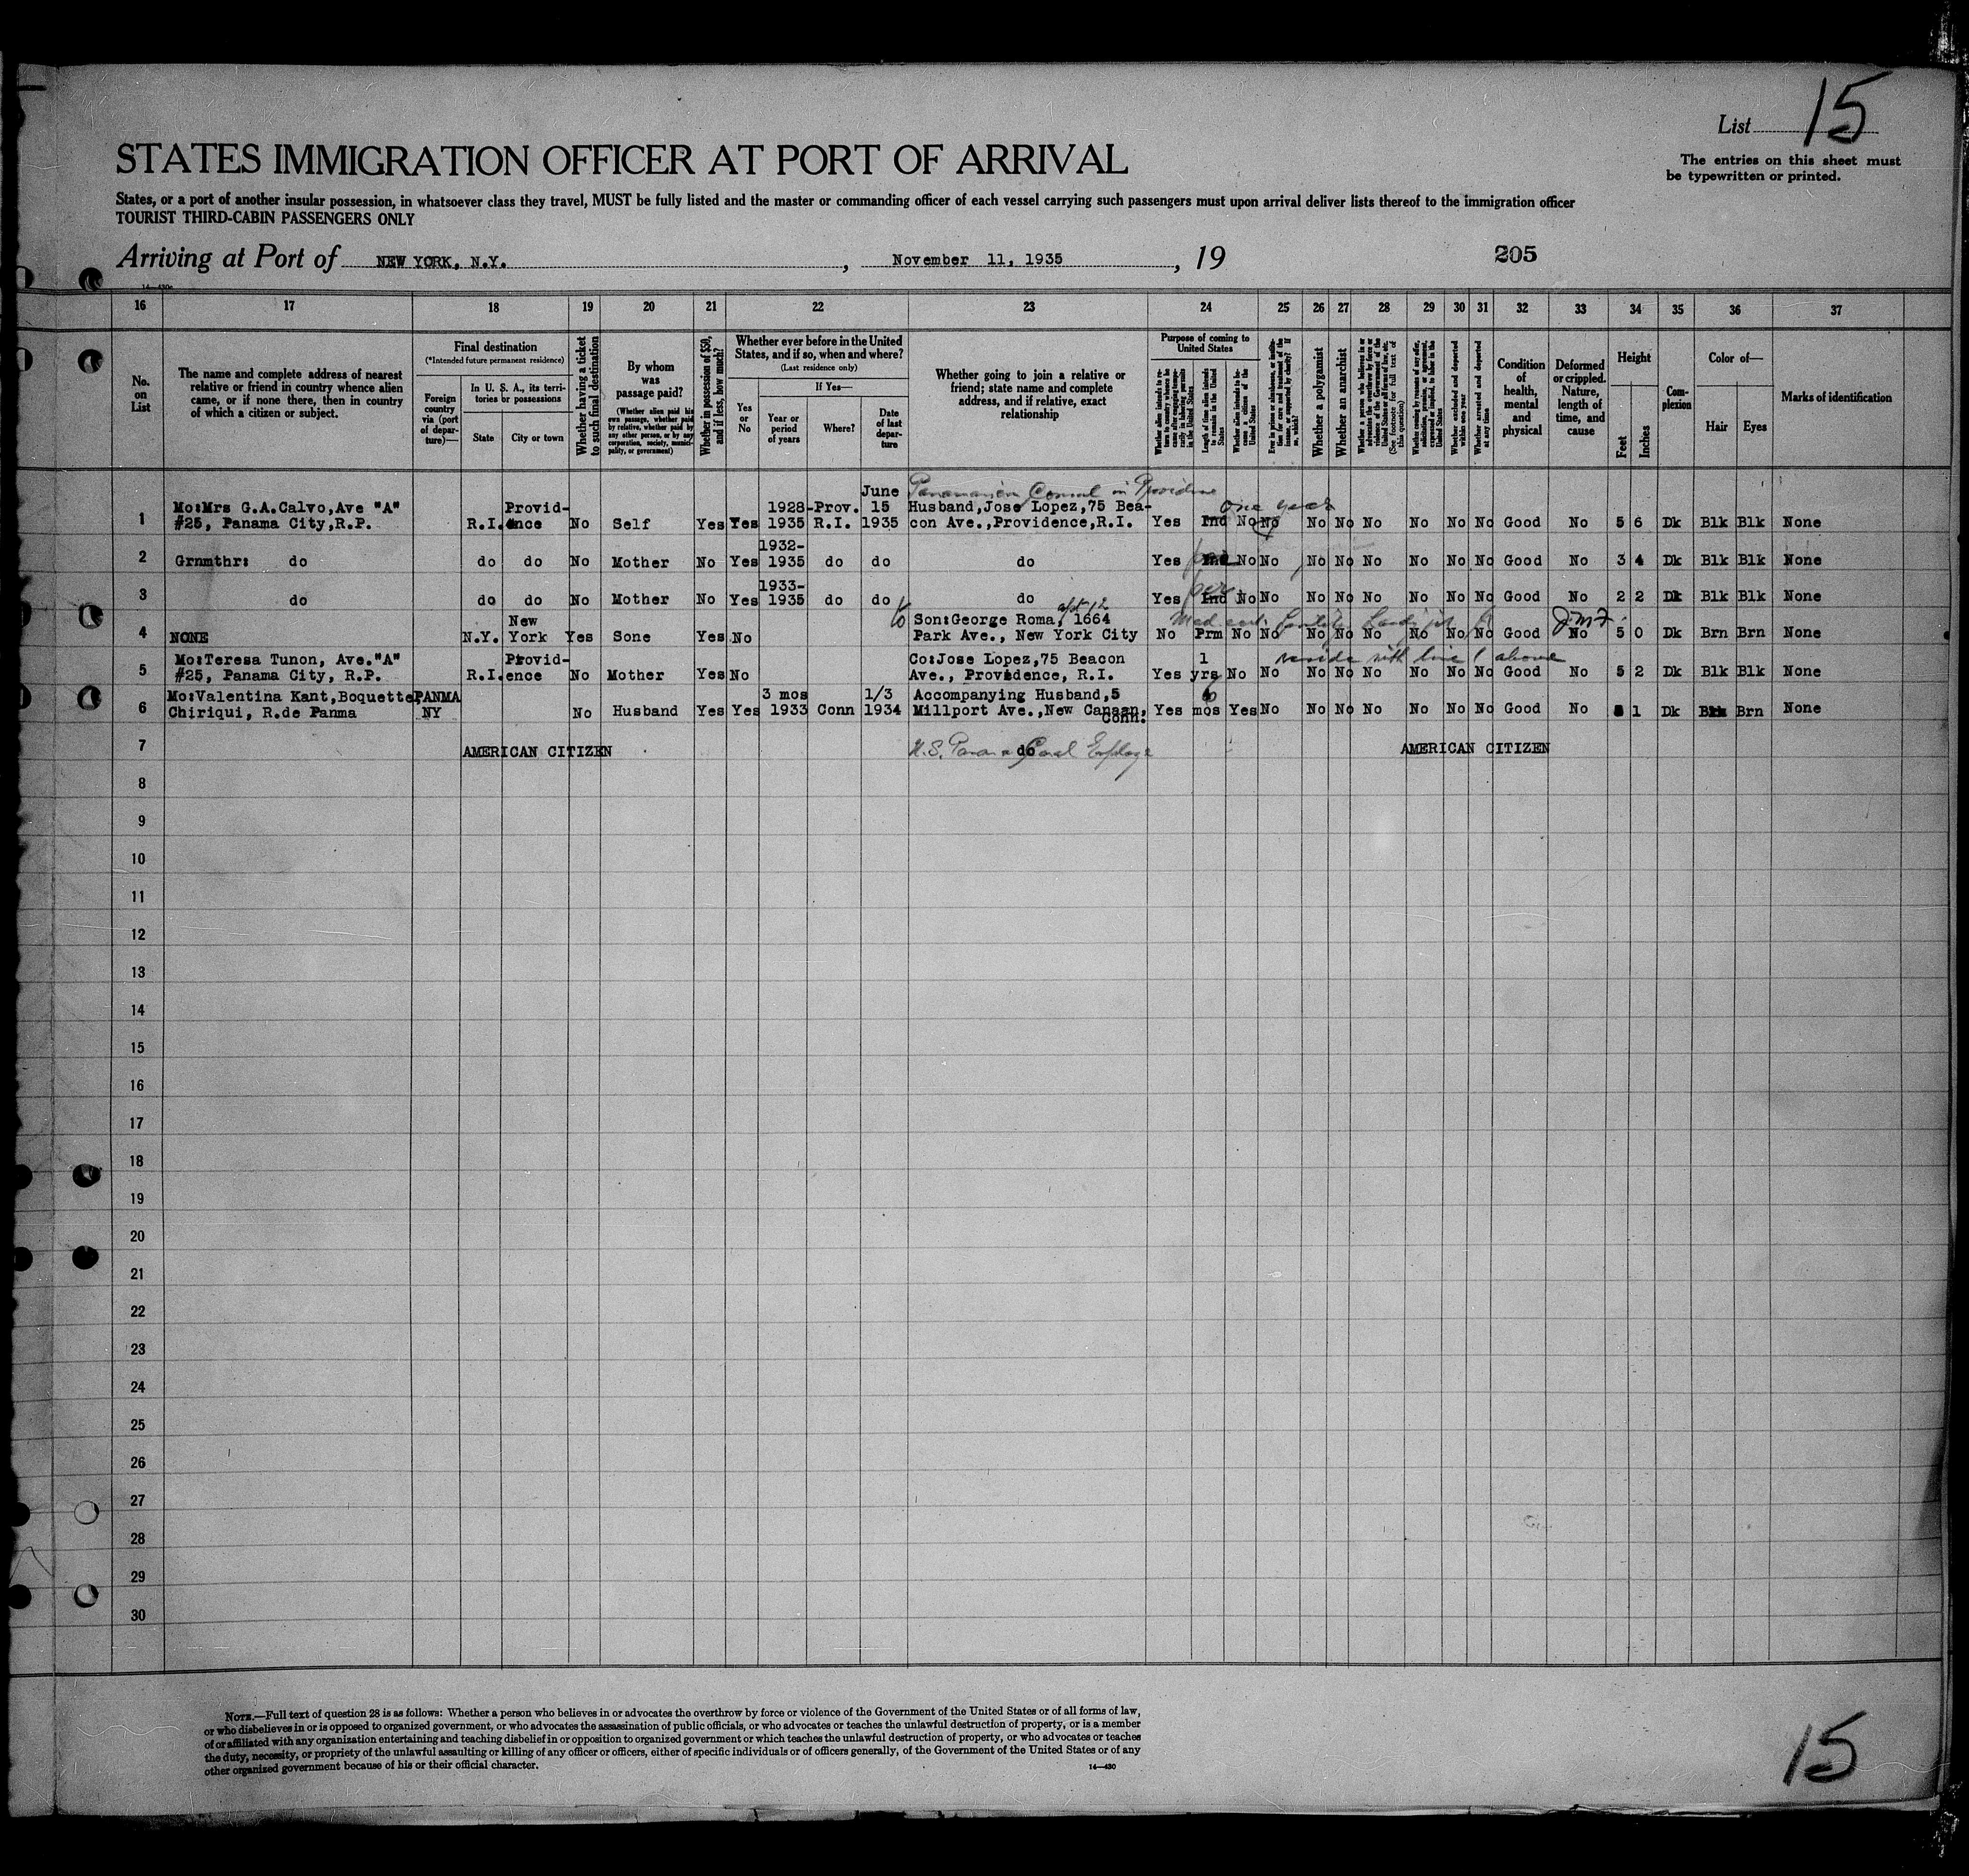 List 15
STATES IMMIGRATION OFFICER AT PORT OF ARRIVAL
The entries on this sheet must
be typewritten or printed.
States, or a port of another insular possession, in whatsoever class they travel, MUST be fully listed and the master or commanding officer of each vessel carrying such passengers must upon arrival deliver lists thereof to the immigration officer
TOURIST THIRD-CABIN PASSENGERS ONLY
Arriving at Port of NEW YORK, N.Y. , November 11, 1935 , 19 205
16 17 18 19 20 21 22 23 24 25 26 27 28 29 30 31 32 33 34 35 36 37
No. on List
The name and complete address of nearest
relative or friend in country whence alien
came, or if none there, then in country
of which a citizen or subject.
Final destination
(*Intended future permanent residence)
Foreign country via (port of departure)—
In U. S. A., its territories or possessions
State
City or town
Whether having a ticket to such final destination
By whom was passage paid?
(Whether alien paid his own passage, whether paid by relative, whether paid by any other person, or by any corporation, society, municipality, or government)
Whether in possession of $50, and if less, how much?
Whether ever before in the United States, and if so, when and where?
(Last residence only)
Yes or No
If Yes—
Year or period of years
Where?
Date of last departure
Whether going to join a relative or
friend; state name and complete
address, and if relative, exact
relationship
Purpose of coming to United States
Length of time alien intends to remain in the United States
Whether alien intends to become a citizen of the United States
Whether a polygamist
Whether an anarchist
Whether excluded and deported within one year
Whether arrested and deported at any time
Condition of health, mental and physical
Deformed or crippled. Nature, length of time, and cause
Height
Feet
Inches
Complexion
Color of—
Hair
Eyes
Marks of identification
Panamanian Consul in Providence
one year
1 Mo:Mrs G.A.Calvo,Ave "A" #25, Panama City,R.P. R.I. Providence No Self Yes Yes 1928-1935 Prov. R.I. June 15 1935 Husband,Jose Lopez,75 Beacon Ave.,Providence,R.I. Yes Ind No No No No No No No No Good No 5 6 Dk Blk Blk None
2 Grnmthr: do do do No Mother No Yes 1932-1935 do do do Yes Ind No No No No No No No No Good No 3 4 Dk Blk Blk None
3 do do do No Mother No Yes 1933-1935 do do do Yes Ind No No No No No No No No Good No 2 2 Dk Blk Blk None
apt 12
4 NONE N.Y. New York Yes Sone Yes No Son:George Roma, 1664 Park Ave., New York City No Prm No No No No No No No No Good No 5 0 Dk Brn Brn None
reside with line 1 above
5 Mo:Teresa Tunon, Ave."A" #25, Panama City, R.P. R.I. Providence No Mother Yes No Co:Jose Lopez,75 Beacon Ave., Providence, R.I. Yes 1 yrs No No No No No No No No Good No 5 2 Dk Blk Blk None
6 Mo:Valentina Kant,Boquette, Chiriqui, R.de Panma PANMA NY No Husband Yes Yes 3 mos 1933 Conn 1/3 1934 Accompanying Husband,5 Millport Ave.,New Canaan, Conn. Yes 6 mos Yes No No No No No No No Good No 1 Dk Brn None
7 AMERICAN CITIZEN do AMERICAN CITIZEN
8
9
10
11
12
13
14
15
16
17
18
19
20
21
22
23
24
25
26
27
28
29
30
NOTE.—Full text of question 28 is as follows: Whether a person who believes in or advocates the overthrow by force or violence of the Government of the United States or of all forms of law,
or who disbelieves in or is opposed to organized government, or who advocates the assassination of public officials, or who advocates or teaches the unlawful destruction of property, or is a member
of or affiliated with any organization entertaining and teaching disbelief in or opposition to organized government or which teaches the unlawful destruction of property, or who advocates or teaches
the duty, necessity, or propriety of the unlawful assaulting or killing of any officer or officers, either of specific individuals or of officers generally, of the Government of the United States or of any
other organized government because of his or their official character.
14—430
15